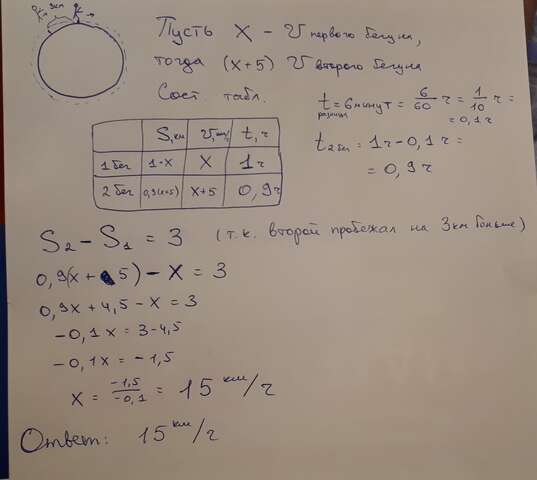 3км
Пусть X – v первого бегуна,
тогда (x+5) v второго бегуна
Сост. табл.
t разница = 6 минут = 6/60 ч = 1/10 ч =
= 0,1 ч
t 2 бег = 1ч – 0,1 ч =
= 0,9 ч
S, км v, км/ч t, ч
1 бег 1·X X 1 ч
2 бег 0,9(x+5) X+5 0,9ч
S2 – S1 = 3 (т.к. второй пробежал на 3км больше)
0,9(x + 5) – X = 3
0,9x + 4,5 – X = 3
–0,1 x = 3–4,5
–0,1x = –1,5
X = –1,5/–0,1 = 15 км/ч
Ответ: 15 км/ч